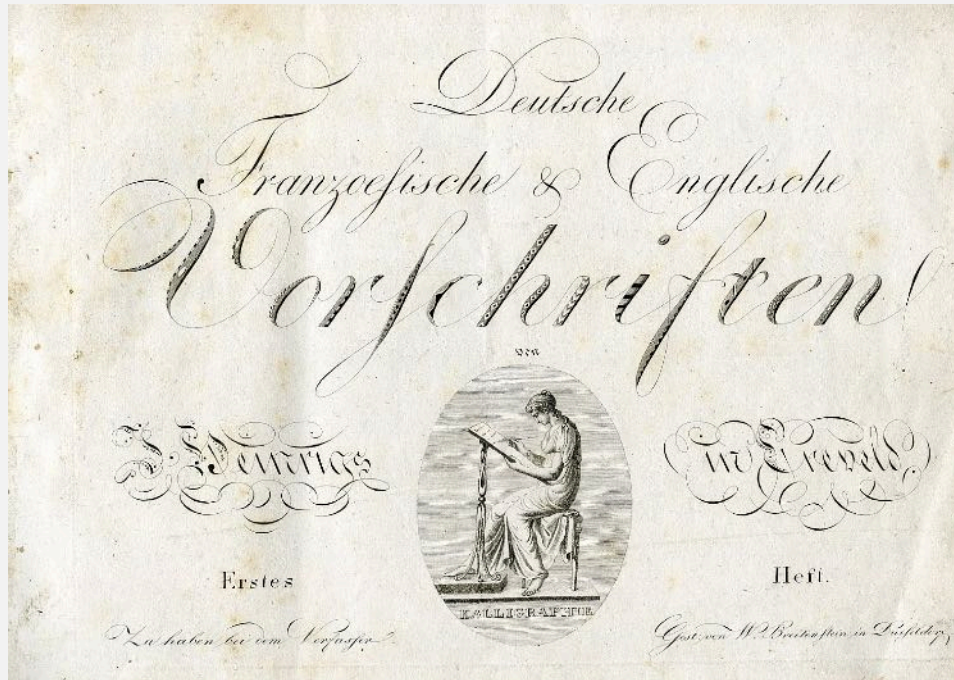 Deutsche
Franzoeſische & Engliſche
Vorſchriften
von
J. Heinrigs
in Creveld
Erstes
Heft.
KALLIGRAPHIE
Zu haben bei dem Verfasser.
Gest. von W. Breitenstein in Düsseldorf